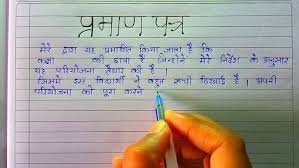 प्रमाण पत्र
मेरे द्वारा यह प्रमाणित किया जाता है कि
कक्षा की छात्रा है जिन्होंने मेरे निर्देश के अनुसार
यह परियोजना तैयार की है ।
जिसमें इस विद्यार्थी ने बहुत रूची दिखाई है । अपनी
परियोजना को पूरा करने